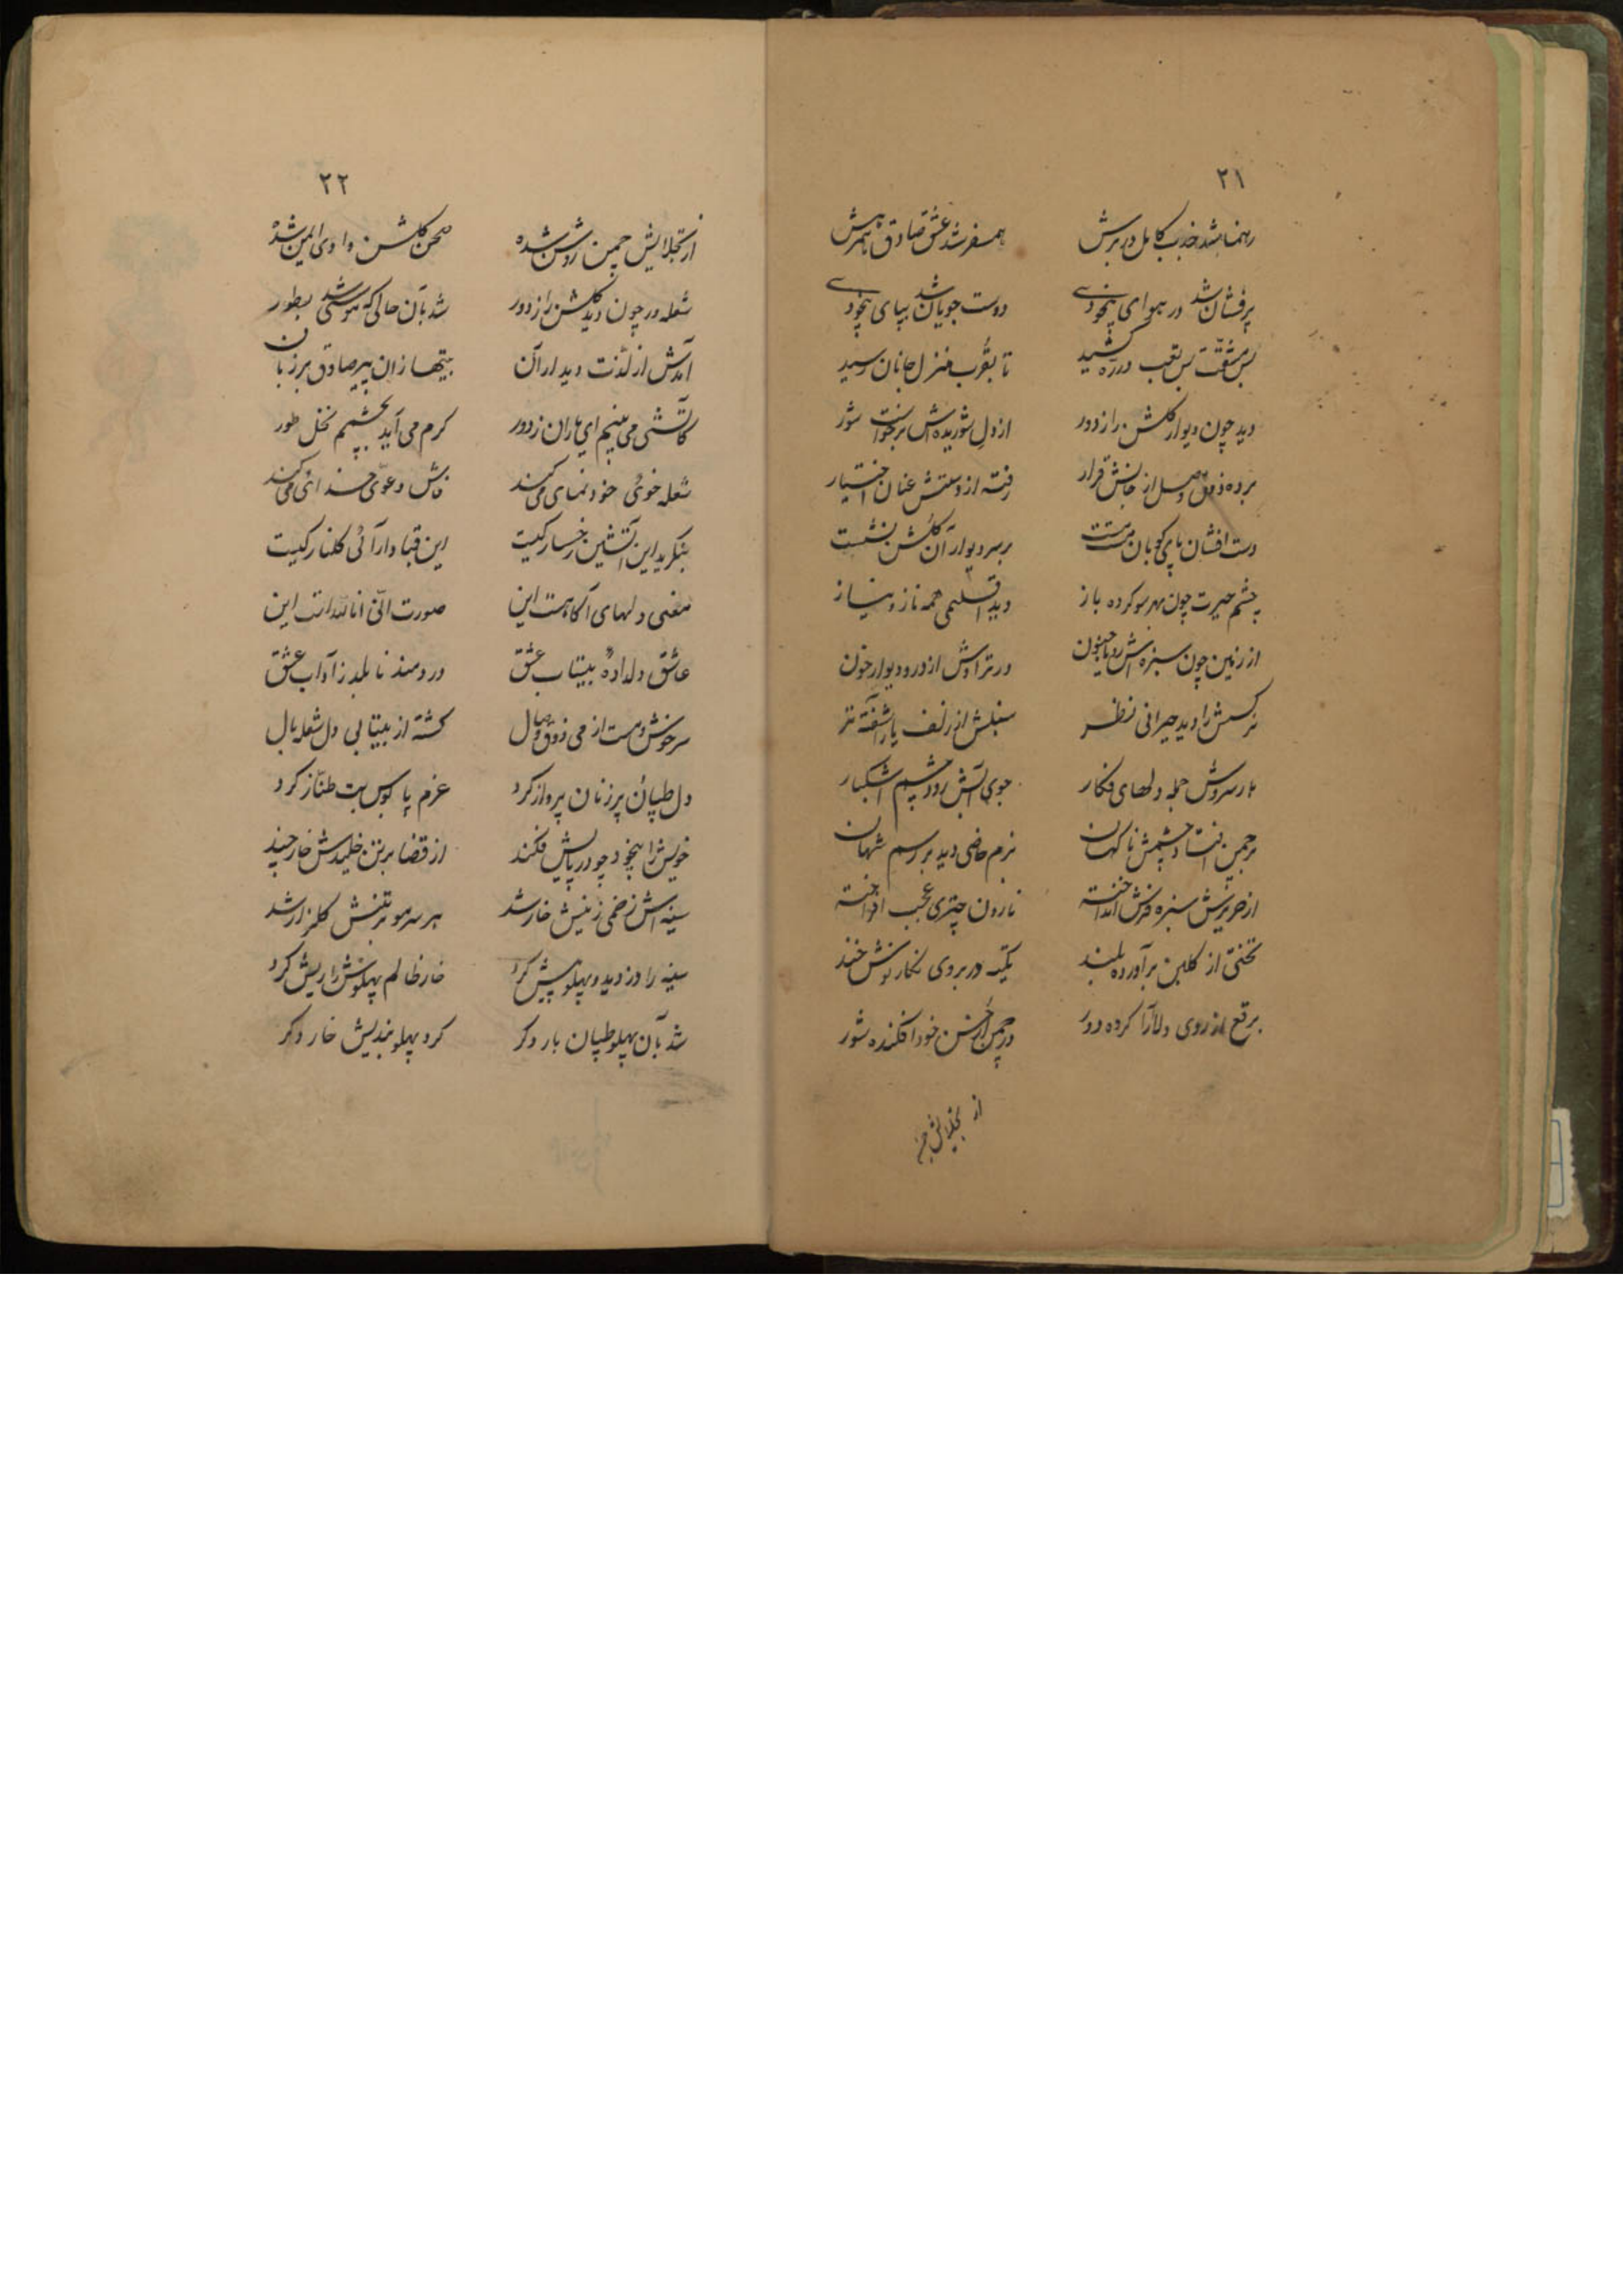 ۲۱
رهنما شد جذب کامل در برش همسفر شد عشق صادق همرهش
پرفشان شد در هوای بیخودی دوست جویان شد بپای بیخودی
بس مشقت بس تعب در ره کشید تا بقرب منزل جانان رسید
دید چون دیوار گلشن را ز دور از دل شوریده اش برخواست شور
برده ذوق وصل از جانش قرار رفته از دستش عنان اختیار
دست افشان پای کوبان مست بر سر دیوار آن گلشن نشست
چشم حیرت چون بهر سو کرده باز دید اقلیمی همه ناز و نیاز
از زمین چون سبزه اش در تراوش از در و دیوار خون
نرگسش را دید حیرانی نظر سنبلش از زلف یار آشفته تر
بار سروش جمله دلهای فکار جوی آبش رود چشم اشکبار
بر چمن افتاد چشمش ناگهان بزم خاصی دید بر رسم شهان
از حریرش سبزه فرش انداخته نارون چتری عجب افراخته
تختی از گلبن برآورده بلند تکیه در بروی نگار نوش خند
برقع از روی دلارا کرده دور در چمن از حسن خود افکنده شور
از تجلایش چمن
۲۲
از تجلایش چمن روشن شده صحن گلشن وادی ایمن شده
شعله ور چون دید گلشن را ز دور شد بآن حالی که موسی شد بطور
آمدش از لذت دیدار آن بیتها زان پیر صادق بر زبان
کآتشی می بینم ای یاران ز دور گرم می آید بچشمم نخل طور
شعله خوئی خود نمای می کند فاش دعوی خدائی می کند
بنگرید این آتشین رخسار کیست این قبا دارائی گلنار کیست
معنی دلهای آگاهست این صورت انی انا اللهست این
عاشق دلداده بیتاب عشق دردمند نابلد ز آداب عشق
سرخوش و مست از می ذوق وصال گشته از بیتابی دل شعله بال
دل طپان پر زنان پرواز کرد عزم پا بوس بت طناز کرد
خویش را بیخود چو در پایش فکند از قضا بر تن خلیدش خار چند
سینه اش زخمی ز نیش خار شد هر سر مو بر تنش گلزار شد
سینه را دزدید و پهلو پیش کرد خار ظالم پهلویش را ریش کرد
شد بآن پهلو طپان بار دگر کرد پهلو بندیش خار دگر